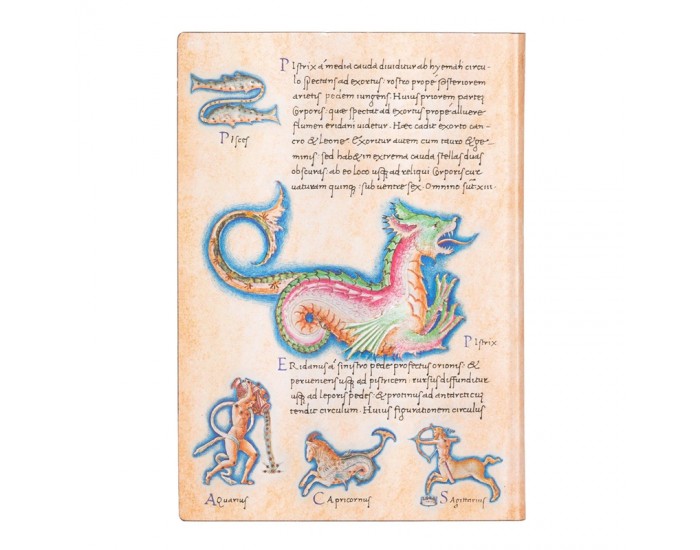 PIstrix á media cauda diuiditur ab hyemali circu-
lo spectans ad exortus: rostro prope sesteriorem
arietis pedem iungens. Huius priorem partem
Corporis: quæ spectat ad exortus prope alluere
flumen eridani uidetur. Hæc cadit exorto can-
cro & Leone. Exoritur autem cum tauro & ge-
minis: sed hab& in extrema cauda stellas duas
obscuras. ab eo loco usq; ad reliqui Corporis cur
uaturam quinq; sub uentre sex. Omnino sut xiii.
PIsces
PIstrix
ERidanus á sinistro pede profectus orionis: &
perueniens usq; ad pistricem: rursus diffunditur
usq; ad leporis pedes: & protinus ad antarcticu
tendit circulum. Huius figurationem circulus
AQuarius
CApricornus
SAgittarius